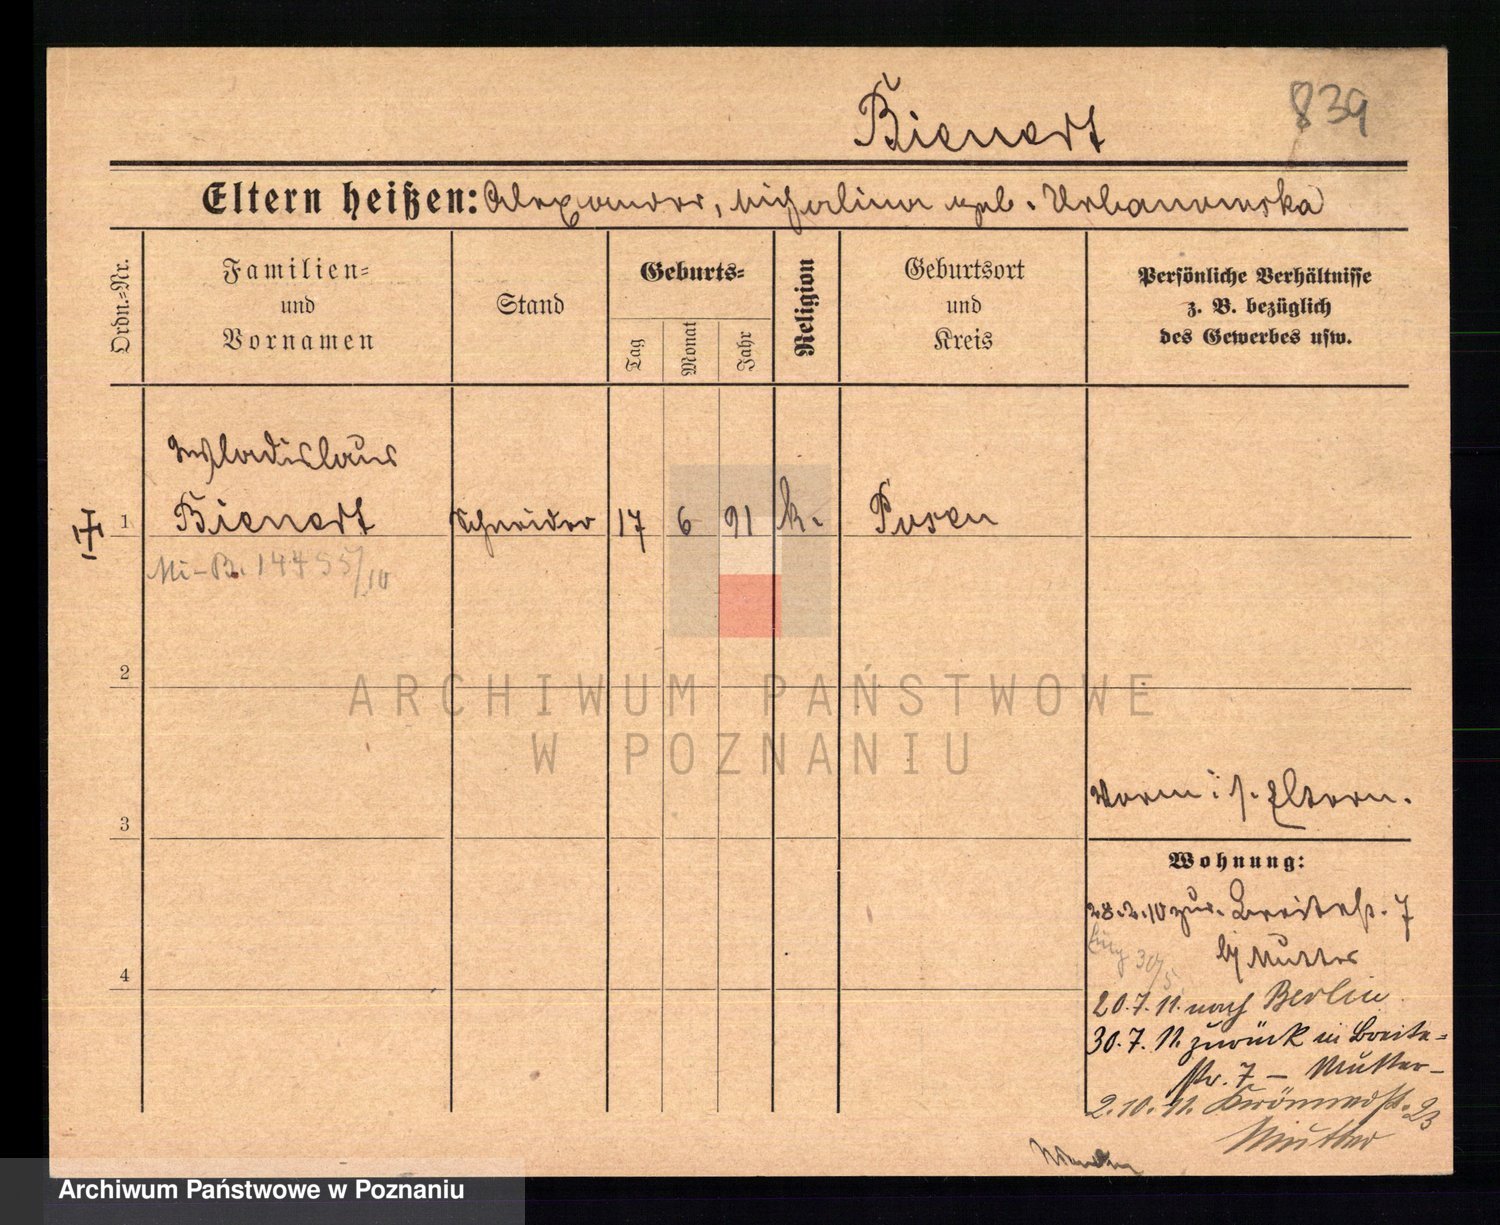 Bienert
839
Eltern heißen: Alexander, Michalina geb. Urbanowska
Ordn.=Nr.
Familien=
und
Vornamen
Stand
Geburts=
Tag
Monat
Jahr
Religion
Geburtsort
und
Kreis
Persönliche Verhältnisse
z. B. bezüglich
des Gewerbes usw.
Wladislaus
1 Bienert Schneider 17 6 91 k. Posen
Mi-B. 14455/10
2
ARCHIWUM PAŃSTWOWE
W POZNANIU
vorm: s. Eltern.
3
Wohnung:
28.2.10 zur. Breitestr. 7
30/5.
bei Mutter
4
20.7.11. nach Berlin.
30.7.11. zurück in Breite=
str. 7 – Mutter –
2.10.11. 23
Mutter
Archiwum Państwowe w Poznaniu